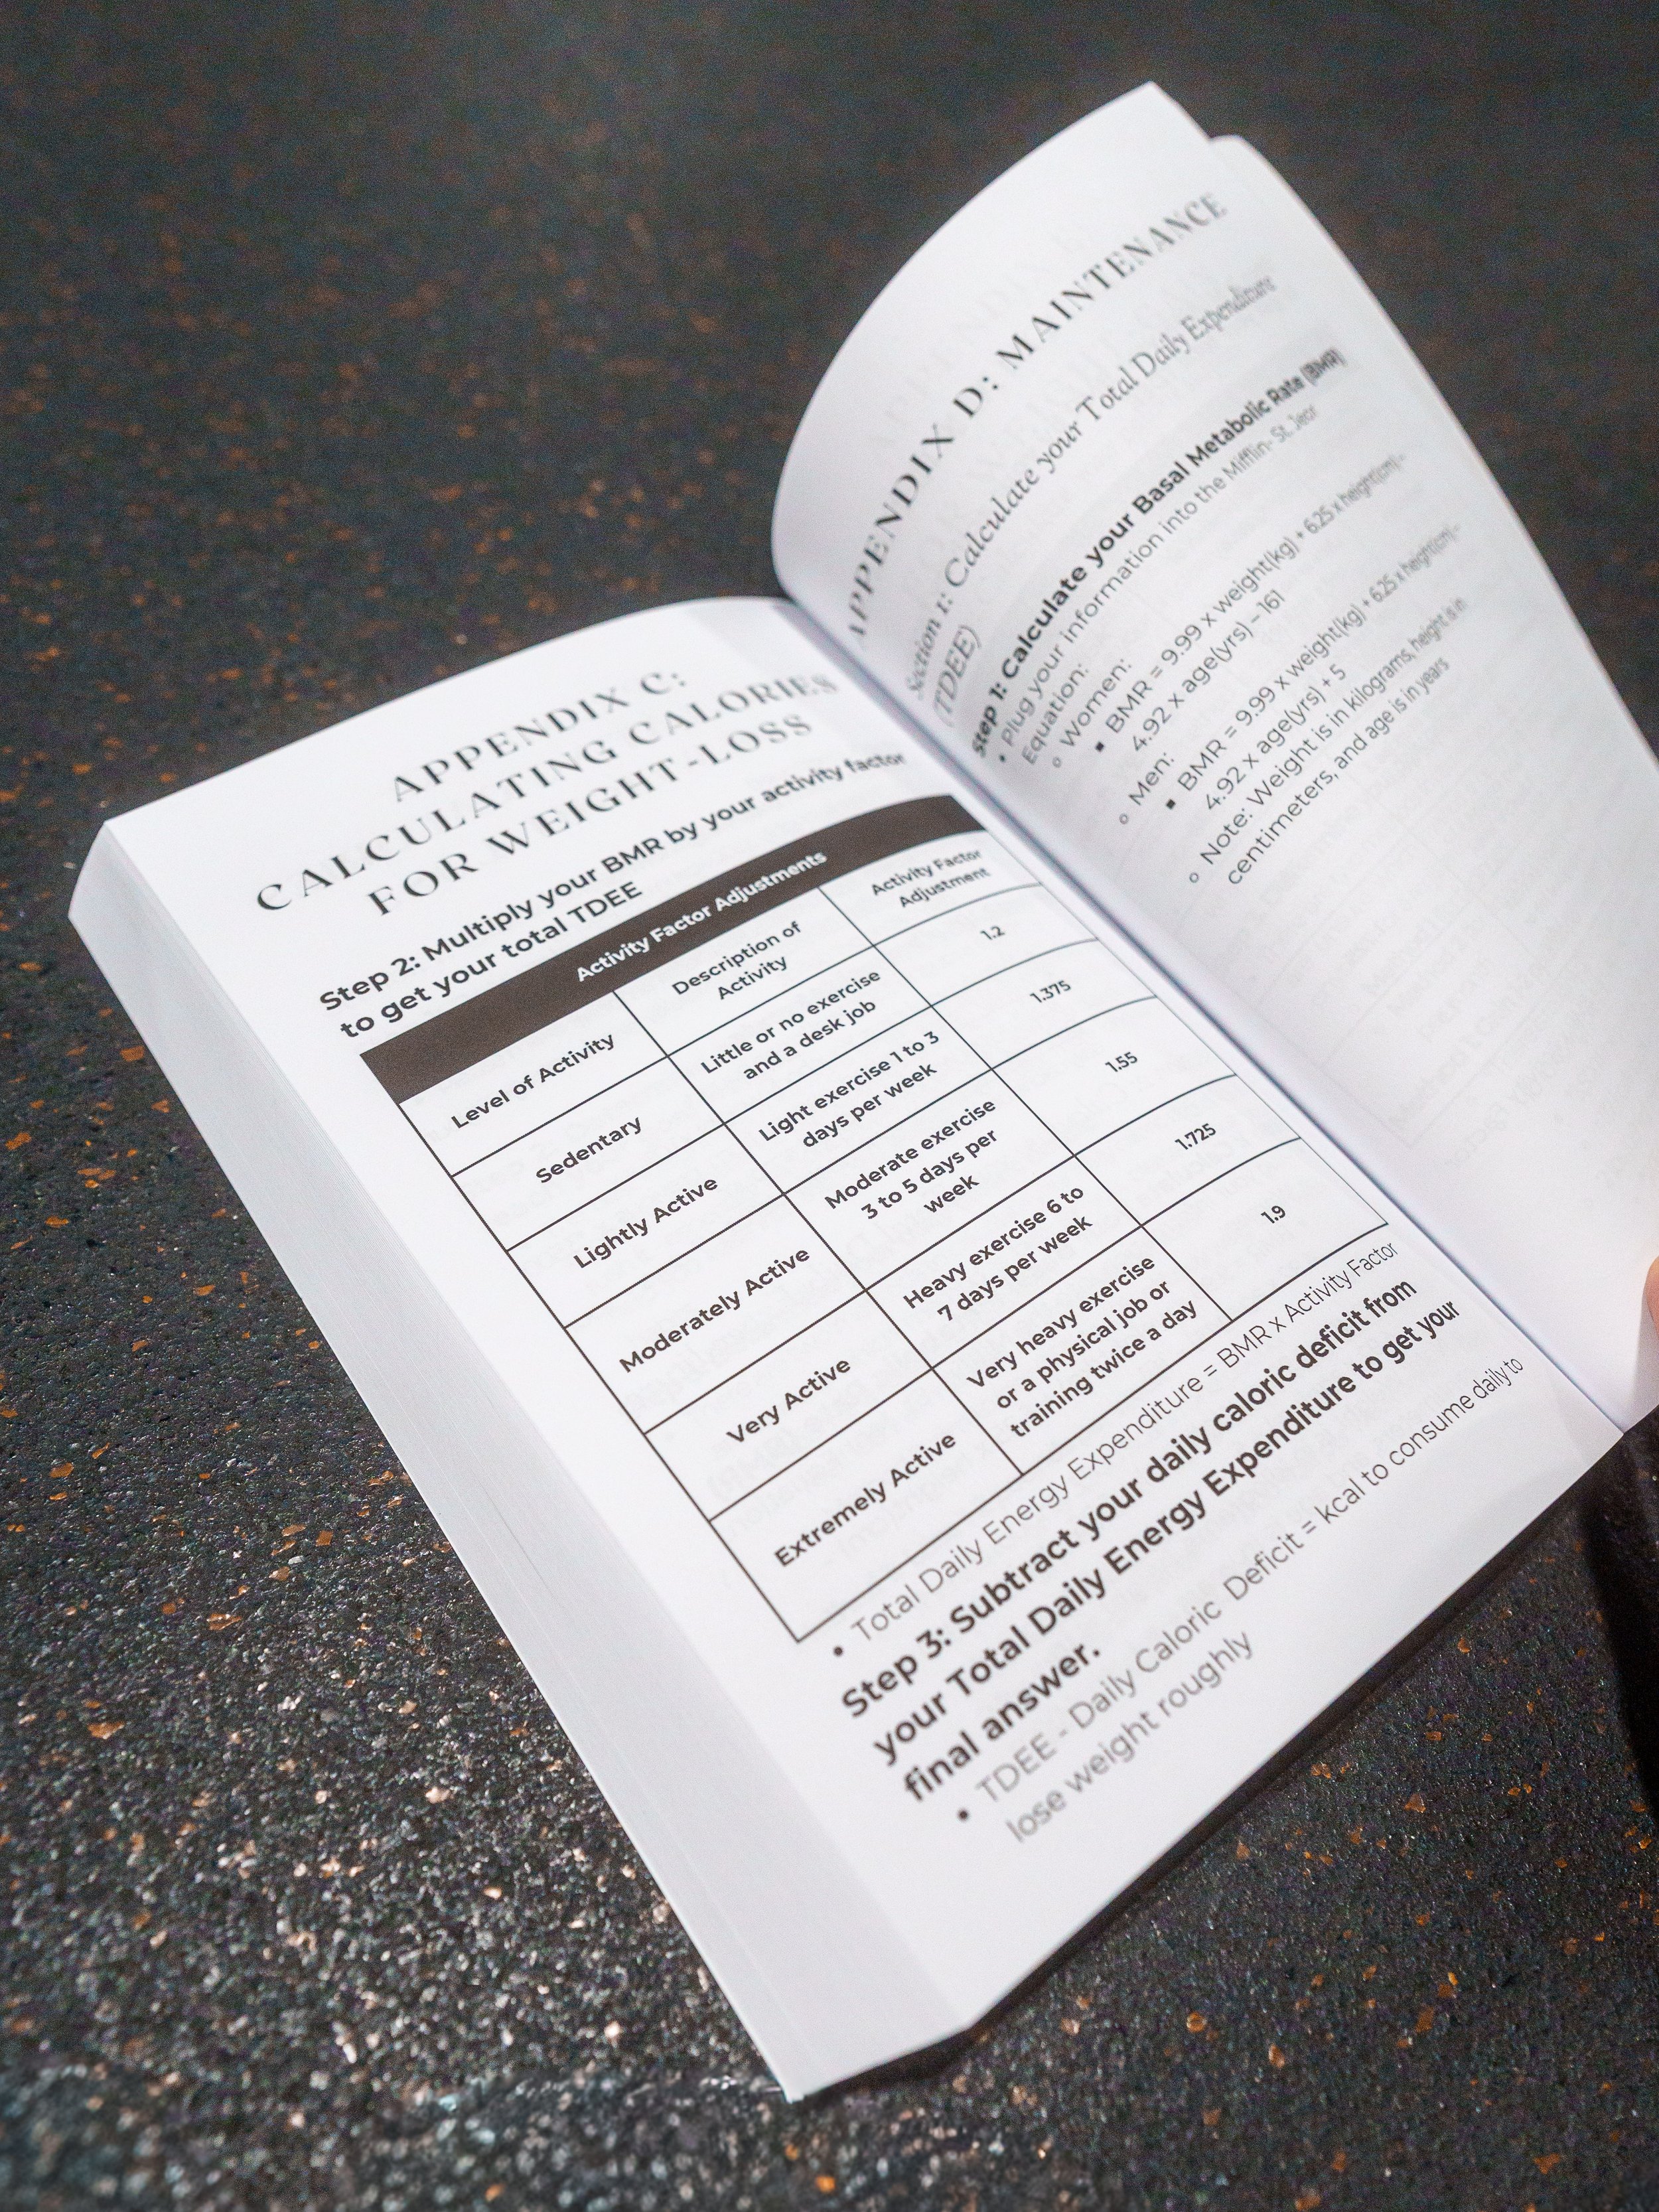 APPENDIX C:
CALCULATING CALORIES
FOR WEIGHT-LOSS
Step 2: Multiply your BMR by your activity factor
to get your total TDEE
Activity Factor Adjustments
Level of Activity
Description of
Activity
Activity Factor
Adjustment
Sedentary
Little or no exercise
and a desk job
1.2
Lightly Active
Light exercise 1 to 3
days per week
1.375
Moderately Active
Moderate exercise
3 to 5 days per
week
1.55
Very Active
Heavy exercise 6 to
7 days per week
1.725
Extremely Active
Very heavy exercise
or a physical job or
training twice a day
1.9
• Total Daily Energy Expenditure = BMR x Activity Factor
Step 3: Subtract your daily caloric deficit from
your Total Daily Energy Expenditure to get your
final answer.
• TDEE - Daily Caloric Deficit = kcal to consume daily to
lose weight roughly
APPENDIX D: MAINTENANCE
Section 1: Calculate your Total Daily Expenditure
(TDEE)
Step 1: Calculate your Basal Metabolic Rate (BMR)
• Plug your information into the Mifflin- St. Jeor
Equation:
○ Women:
▪ BMR = 9.99 x weight(kg) + 6.25 x height(cm) -
4.92 x age(yrs) - 161
○ Men:
▪ BMR = 9.99 x weight(kg) + 6.25 x height(cm) -
4.92 x age(yrs) + 5
○ Note: Weight is in kilograms, height is in
centimeters, and age is in years